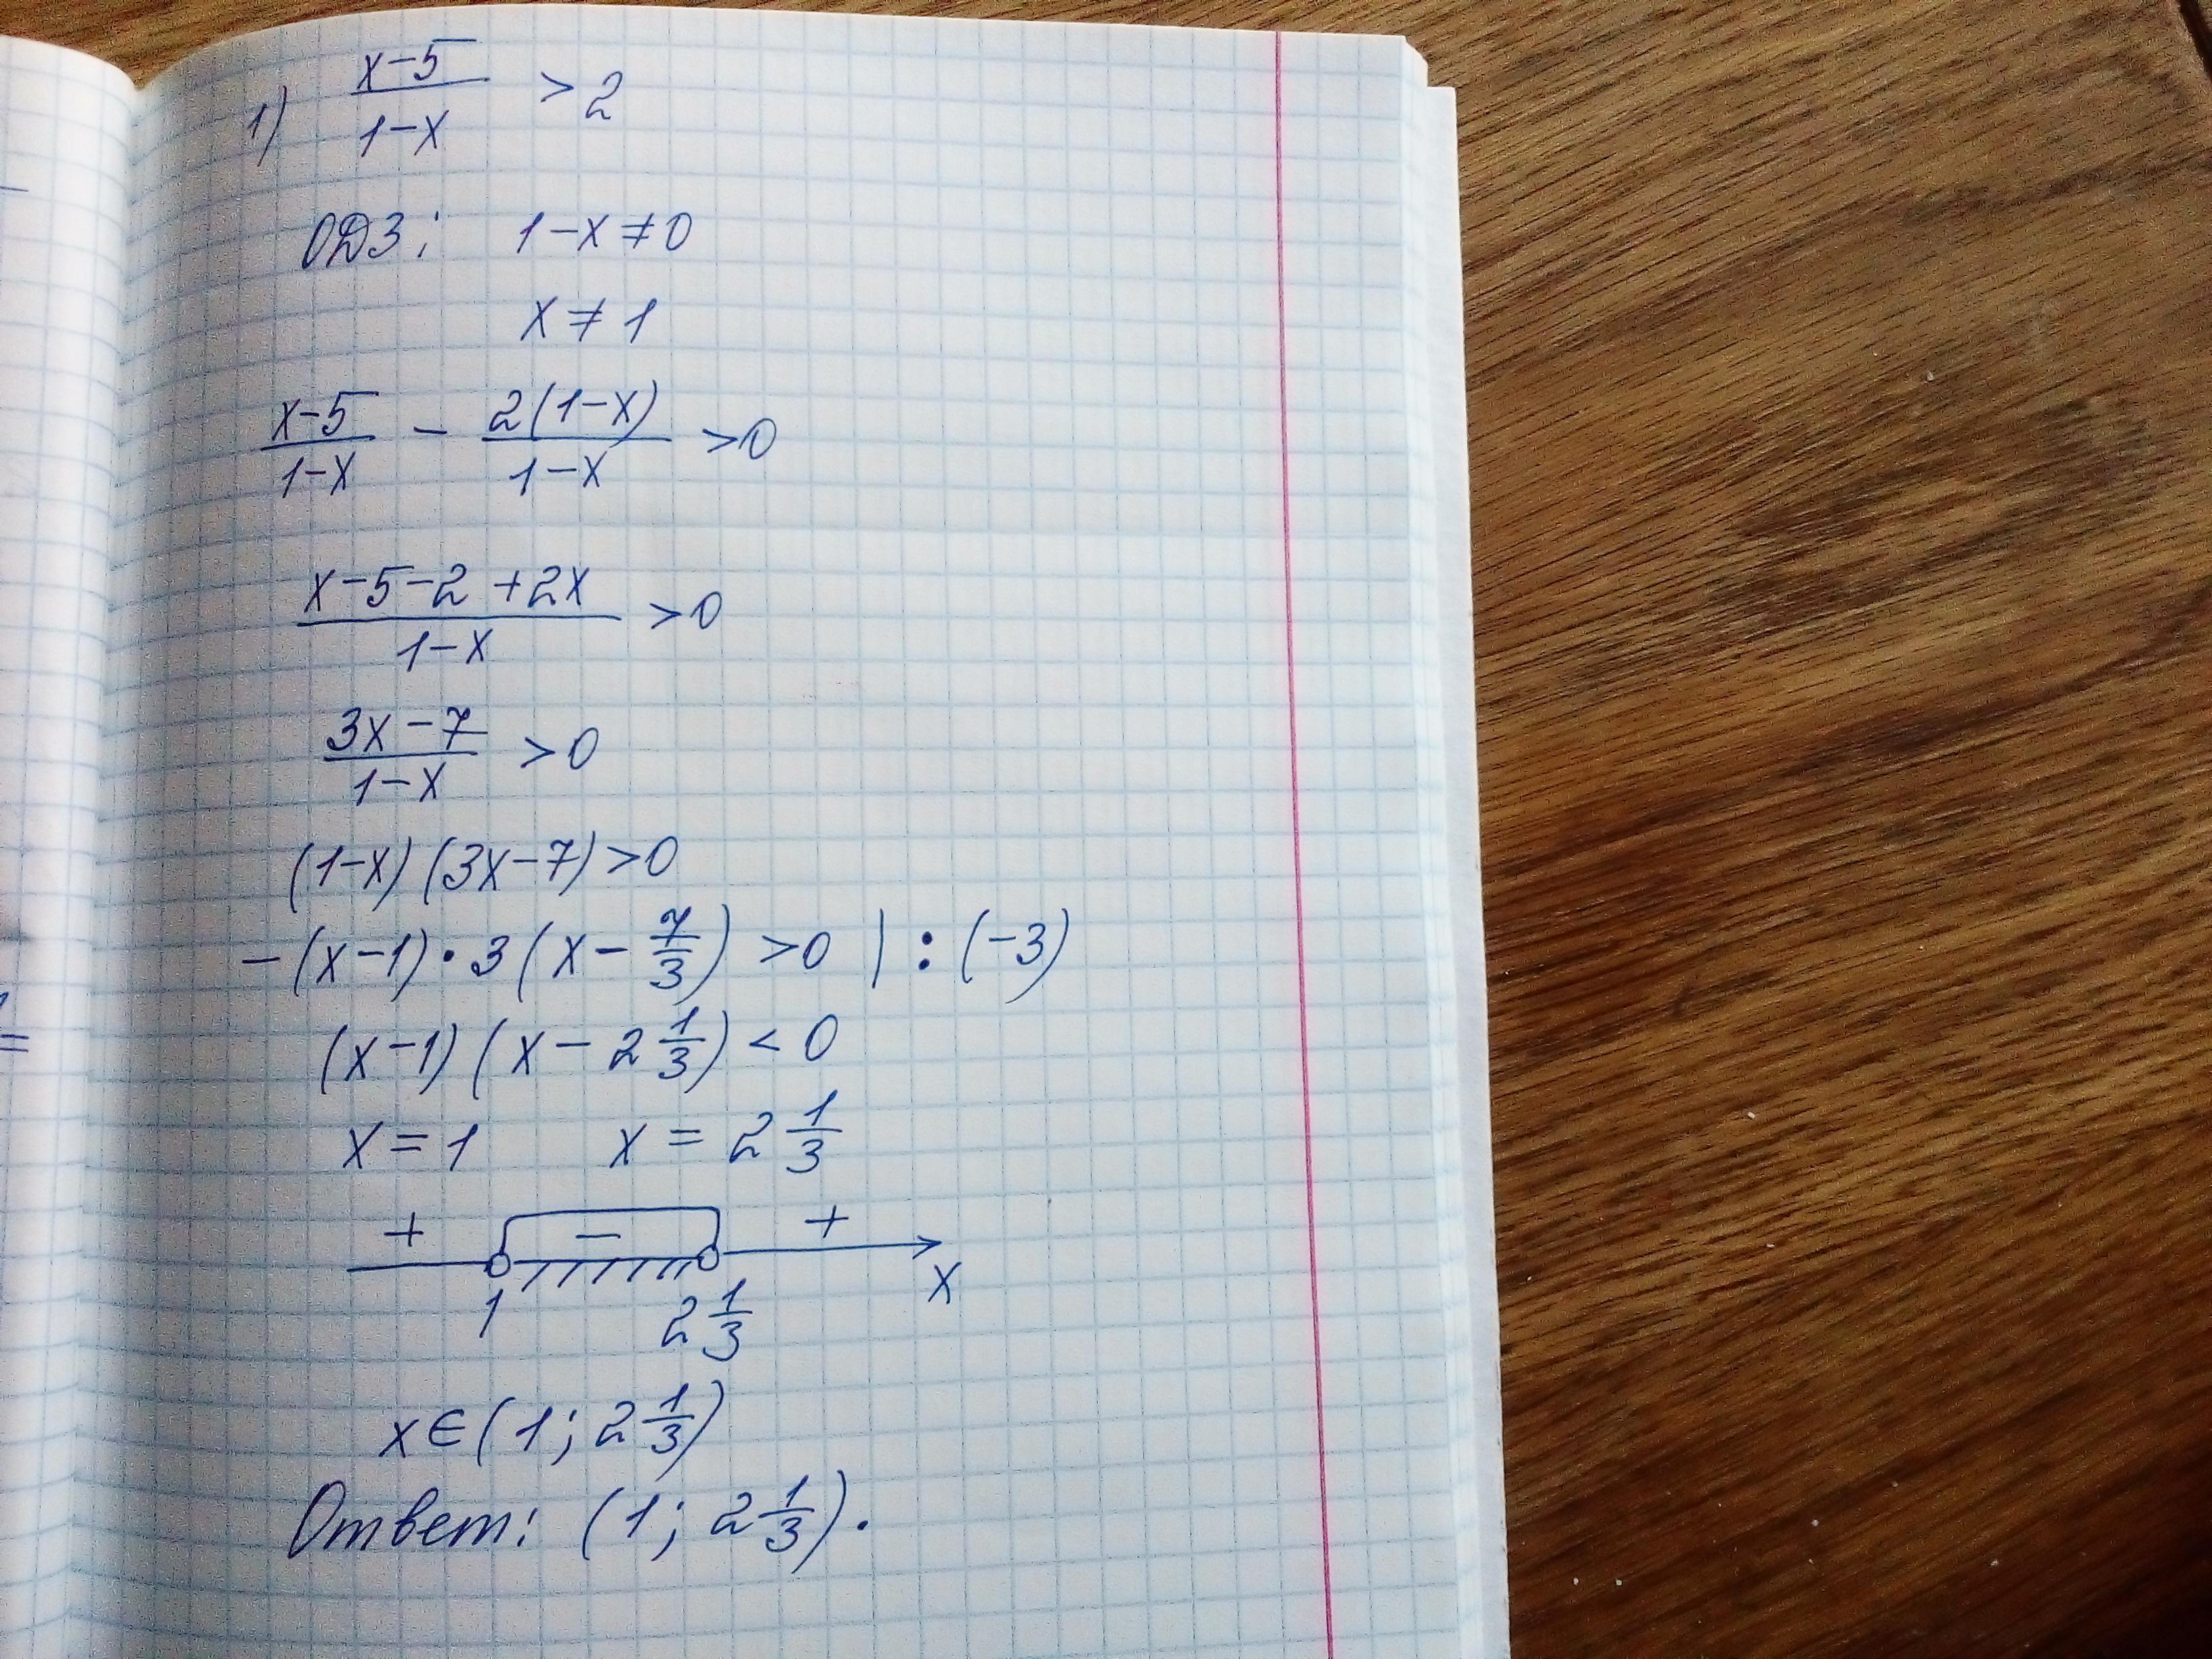 1) (x-5)/(1-x) > 2
ОДЗ: 1-x ≠ 0
x ≠ 1
(x-5)/(1-x) - 2(1-x)/(1-x) > 0
(x-5-2+2x)/(1-x) > 0
(3x-7)/(1-x) > 0
(1-x)(3x-7) > 0
-(x-1)·3(x - 7/3) > 0 | : (-3)
(x-1)(x - 2 1/3) < 0
x = 1 x = 2 1/3
+ - +
1 2 1/3 x
x ∈ (1; 2 1/3)
Ответ: (1; 2 1/3).